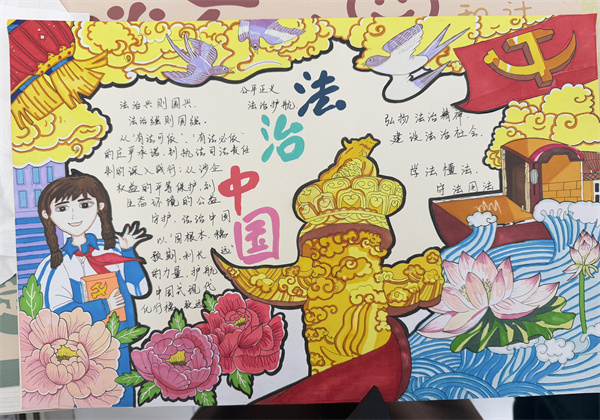 法治兴则国兴,
法治强则国强。
从"有法可依"、"有法必依"
的庄严承诺,到执法司法责任
制的深入践行;从涉企
权益的平等保护,到
生态环境的公益
守护,法治中国
以"固根本、稳
预期、利长远"
的力量,护航
中国式现代
化行稳致远
公平正义
法治护航
法治中国
弘扬法治精神,
建设法治社会。
学法懂法,
守法用法